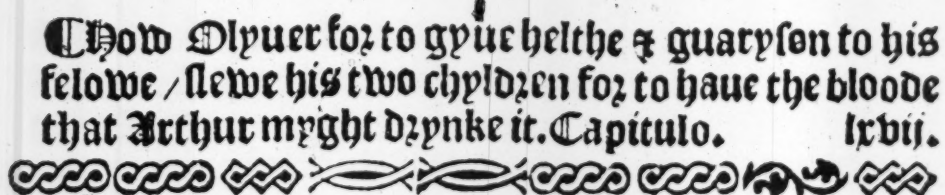 ¶How Olyuer for to gyue helthe ⁊ guaryſon to his
felowe / ſlewe his two chyldren for to haue the bloode
that Arthur myght drynke it. Capitulo. lxvij.